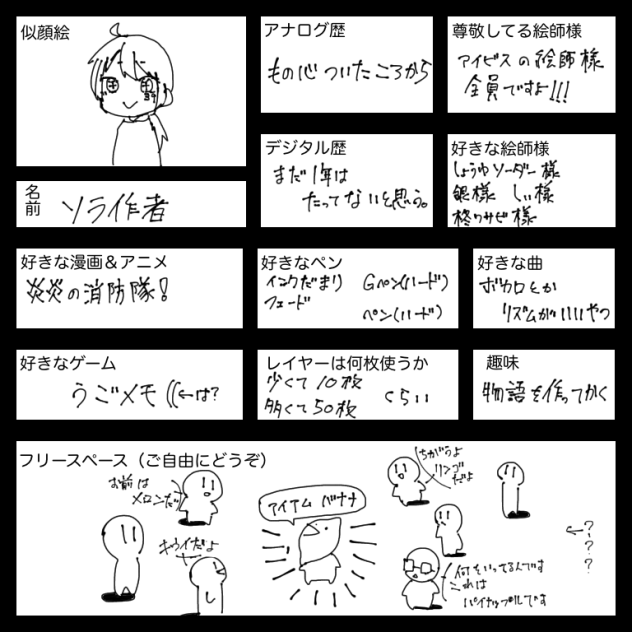 似顔絵
アナログ歴
もの心ついたころから
尊敬してる絵師様
アイビスの絵師様
全員ですよ!!!
デジタル歴
まだ1年は
たってないと思う。
好きな絵師様
しょうゆソーダー様
銀様 しぃ様
柊ワサビ様
名前
ソラ作者
好きな漫画&アニメ
炎炎の消防隊!
好きなペン
インクだまり Gペン(ハード)
フェード
ペン(ハード)
好きな曲
ボカロとか
リズムがいいやつ
好きなゲーム
うごメモ((←は?
レイヤーは何枚使うか
少くて10枚
多くて50枚 くらい
趣味
物語を作ってかく
フリースペース(ご自由にどうぞ)
お前は
メロンだ
キウイだよ
アイアム バナナ
ちがうよ
リンゴ
だよ
何をいってるんです
これは
パイナップルです
←???